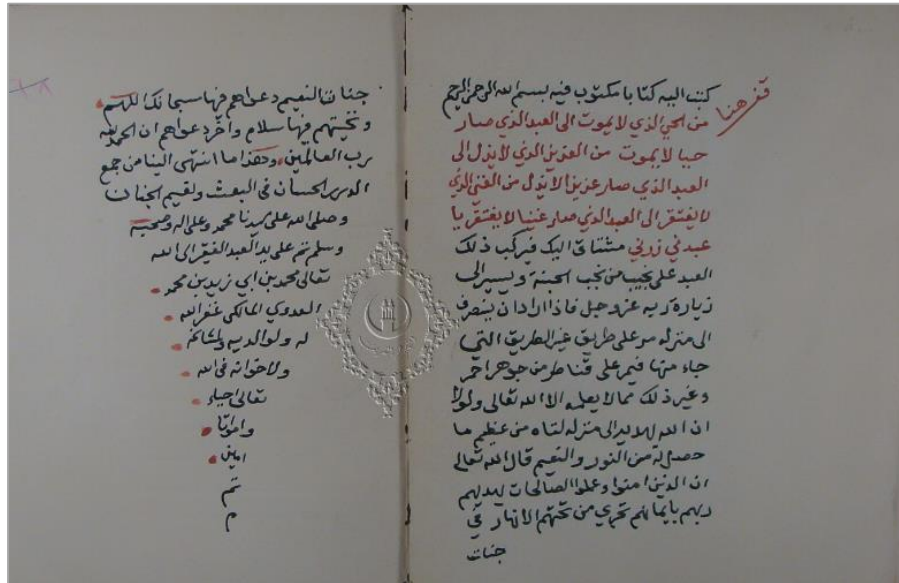 قف هنا
كتب اليه كتابا مكتوب فيه بسم الله الرحمن الرحيم
من الحي الذي لا يموت الى العبد الذي صار
حيا لا يموت من العزيز الذي لا يذل الى
العبد الذي صار عزيزا لا يذل من الغني الذي
لا يفتقر الى العبد الذي صار غنيا لا يفتقر يا
عبدي زرني مشتاق اليك فيركب ذلك
العبد على نجيب من نجب الجنة ويسير الى
زيارة ربه عز وجل فاذا اراد ان ينصرف
الى منزله مر على طريق غير الطريق التي
جاء منها فيمر على قناطر من جوهر احمر
وغير ذلك مما لا يعلمه الا الله تعالى ولولا
ان الله الى منزله لتاه من عظيم ما
حصل له من النور والنعيم قال الله تعالى
ان الذين امنوا وعملوا الصالحات يهديهم
ربهم بايمانهم تجري من تحتهم الانهار في
جنات
جنات النعيم دعواهم فيها سبحانك اللهم
وتحيتهم فيها سلام واخر دعواهم ان الحمد لله
رب العالمين وهذا ما انتهى الينا من جمع
الدرر الحسان في البعث ونعيم الجنان
وصلى الله على سيدنا محمد وعلى اله وصحبه
وسلم تم على يد العبد الفقير الى الله
تعالى محمد بن ابي زيد بن محمد
العدوي المالكي غفر الله
له ولوالديه ولمشائخه
ولاخوانه في الله
تعالى احياء
وامواتا
امين
تم
م